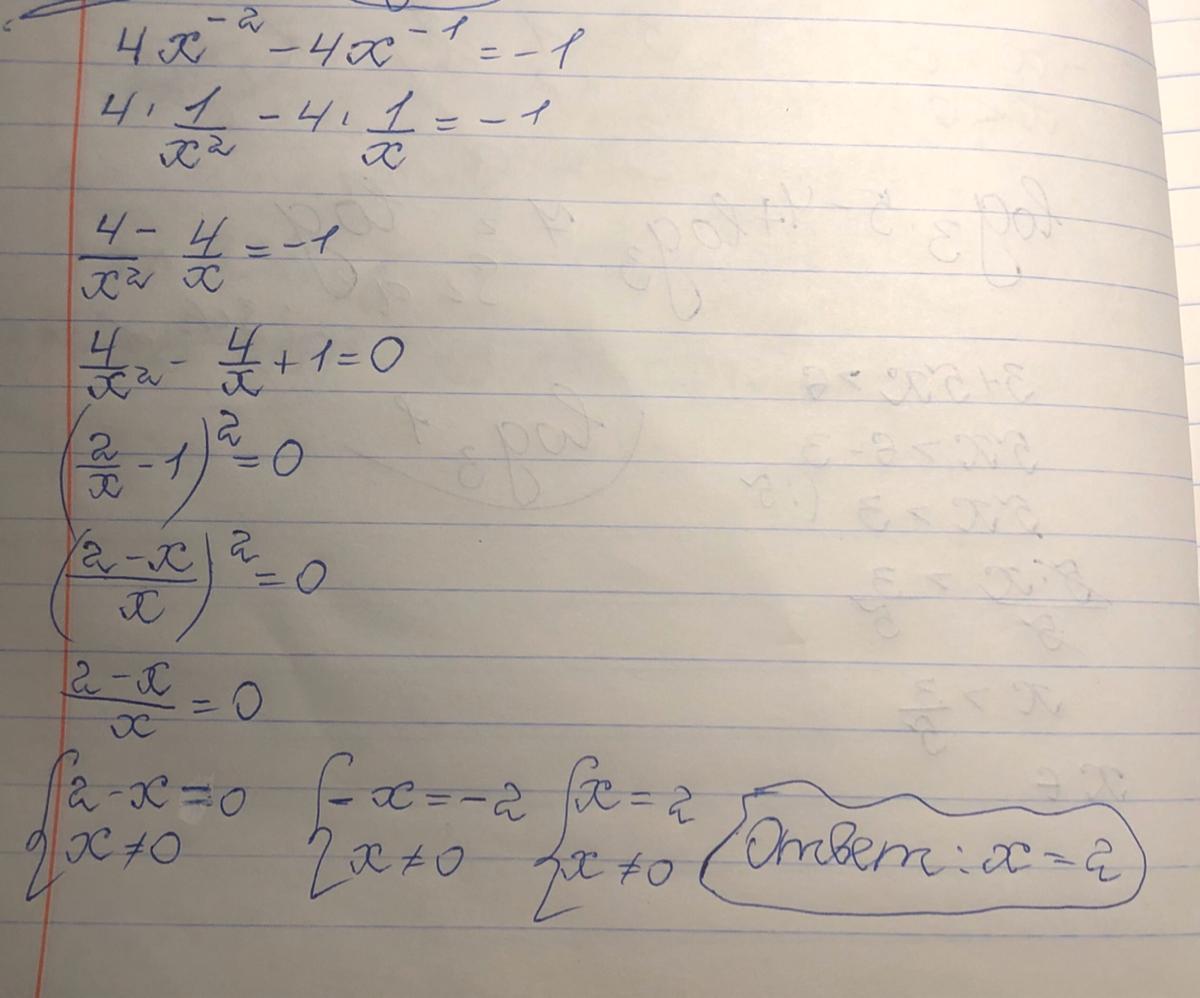 4x⁻² - 4x⁻¹ = -1
4 · 1/x² - 4 · 1/x = -1
4/x² - 4/x = -1
4/x² - 4/x + 1 = 0
(2/x - 1)² = 0
((2-x)/x)² = 0
(2-x)/x = 0
{2-x=0 {-x=-2 {x=2
x≠0 x≠0 x≠0
Ответ: x=2